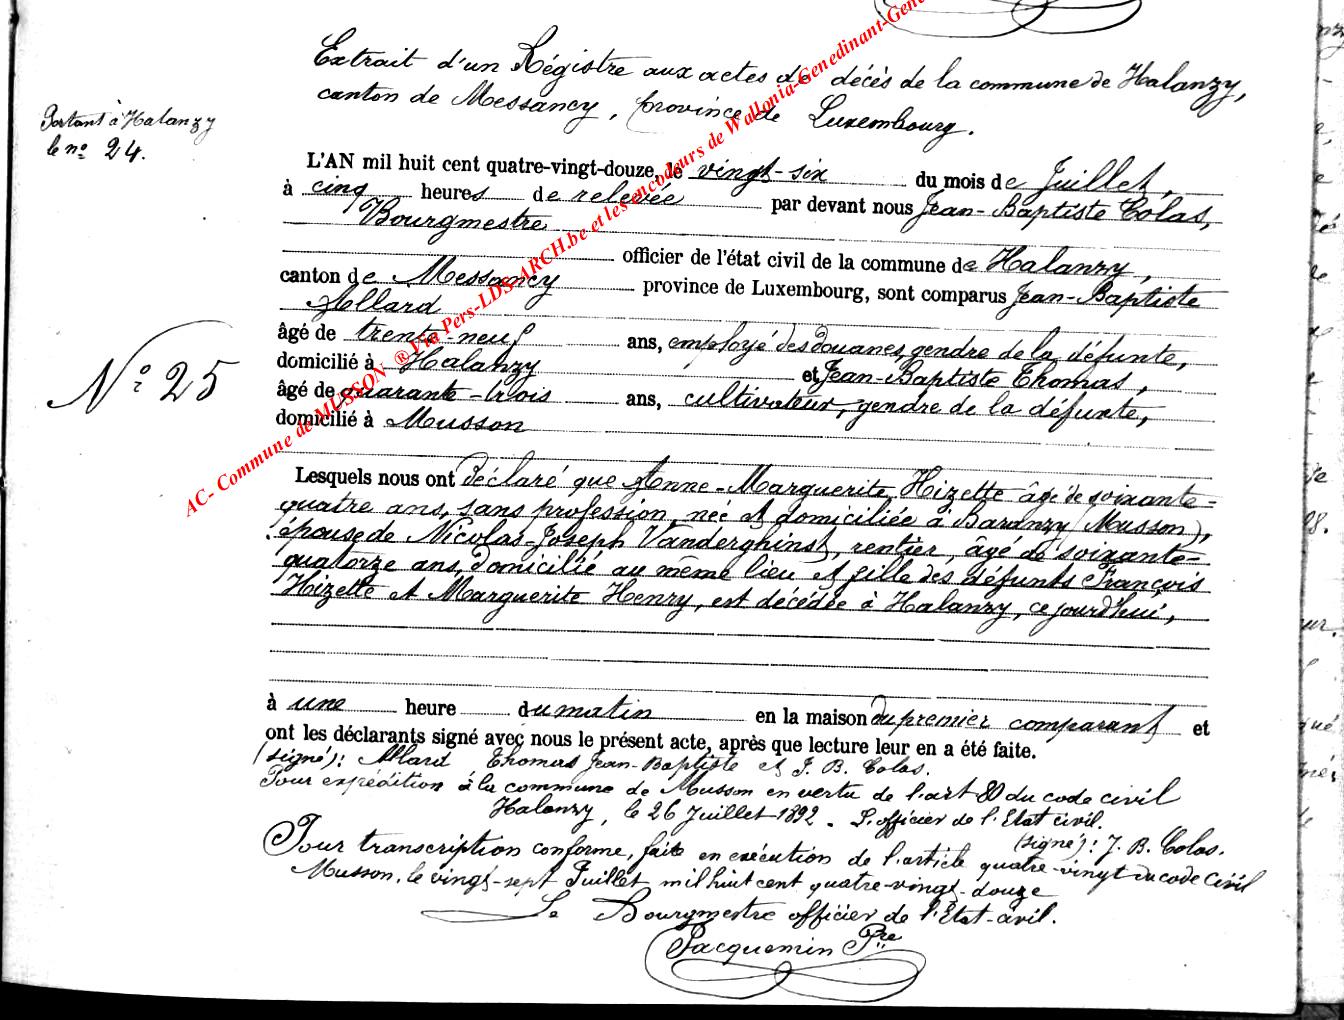 Extrait d'un Régistre aux actes de décès de la commune de Halanzy,
canton de Messancy, province de Luxembourg.
Portant à Halanzy
le no 24.
L'AN mil huit cent quatre-vingt-douze, le vingt-six du mois de Juillet,
à cinq heures de relevée par devant nous Jean-Baptiste Colas,
Bourgmestre
officier de l'état civil de la commune de Halanzy,
canton de Messancy province de Luxembourg, sont comparus Jean-Baptiste
Allard
âgé de trente-neuf ans, employé des douanes, gendre de la défunte,
domicilié à Halanzy et Jean-Baptiste Thomas,
No 25
âgé de quarante-trois ans, cultivateur, gendre de la défunte,
domicilié à Musson
Lesquels nous ont déclaré que Anne-Marguerite Hizette âgé de soixante-
quatre ans, sans profession, née et domiciliée à Baranzy (Musson),
épouse de Nicolas-Joseph Vanderghinst, rentier, âgé de soixante-
quatorze ans, domicilié au même lieu et fille des défunts François
Hizette et Marguerite Henry, est décédée à Halanzy, ce jourd'hui,
à une heure du matin en la maison du premier comparant et
ont les déclarants signé avec nous le présent acte, après que lecture leur en a été faite.
(signé): Allard Thomas Jean-Baptiste et J. B. Colas.
Pour expédition à la commune de Musson en vertu de l'art 80 du code civil
Halanzy, le 26 Juillet 1892. L'officier de l'Etat civil.
(signé): J. B. Colas.
Pour transcription conforme, faite en exécution de l'article quatre-vingt du code civil
Musson, le vingt-sept Juillet mil huit cent quatre-vingt-douze
Le Bourgmestre officier de l'Etat-civil.
Jacquemin Pre
AC- Commune de MUSSON ® Via Pers-LDS-ARCH.be et les encodeurs de Wallonia-Genedinant-Gene